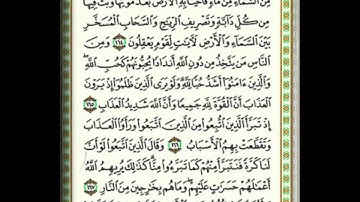 مِنَ ٱلسَّمَآءِ مِن مَّآءٖ فَأَحۡيَا بِهِ ٱلۡأَرۡضَ بَعۡدَ مَوۡتِهَا وَبَثَّ فِيهَا
مِن كُلِّ دَآبَّةٖ وَتَصۡرِيفِ ٱلرِّيَٰحِ وَٱلسَّحَابِ ٱلۡمُسَخَّرِ
بَيۡنَ ٱلسَّمَآءِ وَٱلۡأَرۡضِ لَأٓيَٰتٖ لِّقَوۡمٖ يَعۡقِلُونَ ١٦٤ وَمِنَ
ٱلنَّاسِ مَن يَتَّخِذُ مِن دُونِ ٱللَّهِ أَندَادٗا يُحِبُّونَهُمۡ كَحُبِّ ٱللَّهِۖ
وَٱلَّذِينَ ءَامَنُوٓاْ أَشَدُّ حُبّٗا لِّلَّهِۗ وَلَوۡ يَرَى ٱلَّذِينَ ظَلَمُوٓاْ إِذۡ يَرَوۡنَ
ٱلۡعَذَابَ أَنَّ ٱلۡقُوَّةَ لِلَّهِ جَمِيعٗا وَأَنَّ ٱللَّهَ شَدِيدُ ٱلۡعَذَابِ
١٦٥ إِذۡ تَبَرَّأَ ٱلَّذِينَ ٱتُّبِعُواْ مِنَ ٱلَّذِينَ ٱتَّبَعُواْ وَرَأَوُاْ ٱلۡعَذَابَ
وَتَقَطَّعَتۡ بِهِمُ ٱلۡأَسۡبَابُ ١٦٦ وَقَالَ ٱلَّذِينَ ٱتَّبَعُواْ لَوۡ أَنَّ
لَنَا كَرَّةٗ فَنَتَبَرَّأَ مِنۡهُمۡ كَمَا تَبَرَّءُواْ مِنَّاۗ كَذَٰلِكَ يُرِيهِمُ ٱللَّهُ
أَعۡمَٰلَهُمۡ حَسَرَٰتٍ عَلَيۡهِمۡۖ وَمَا هُم بِخَٰرِجِينَ مِنَ ٱلنَّارِ ١٦٧